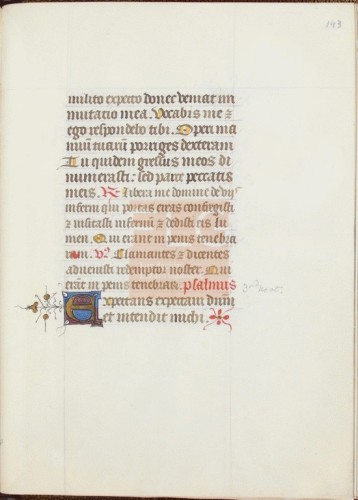 143
milito expecto donec veniat im
mutatio mea. Vocabis me ⁊
ego respondebo tibi. Operi ma
nuū tuarū porriges dexteram
Tu quidem gressus meos di
numerasti: sed parce peccatis
meis. R. Libera me domine de viis
inferni qui portas ereas confregisti
⁊ visitasti infernū ⁊ dedisti eis lu
men. Qui erant in penis tenebra
rum. V. Clamantes ⁊ dicentes
advenisti redemptor noster. Qui
erāt in penis tenebrarū. psalmus
Expectans expectavi dn̄m
et intendit michi.